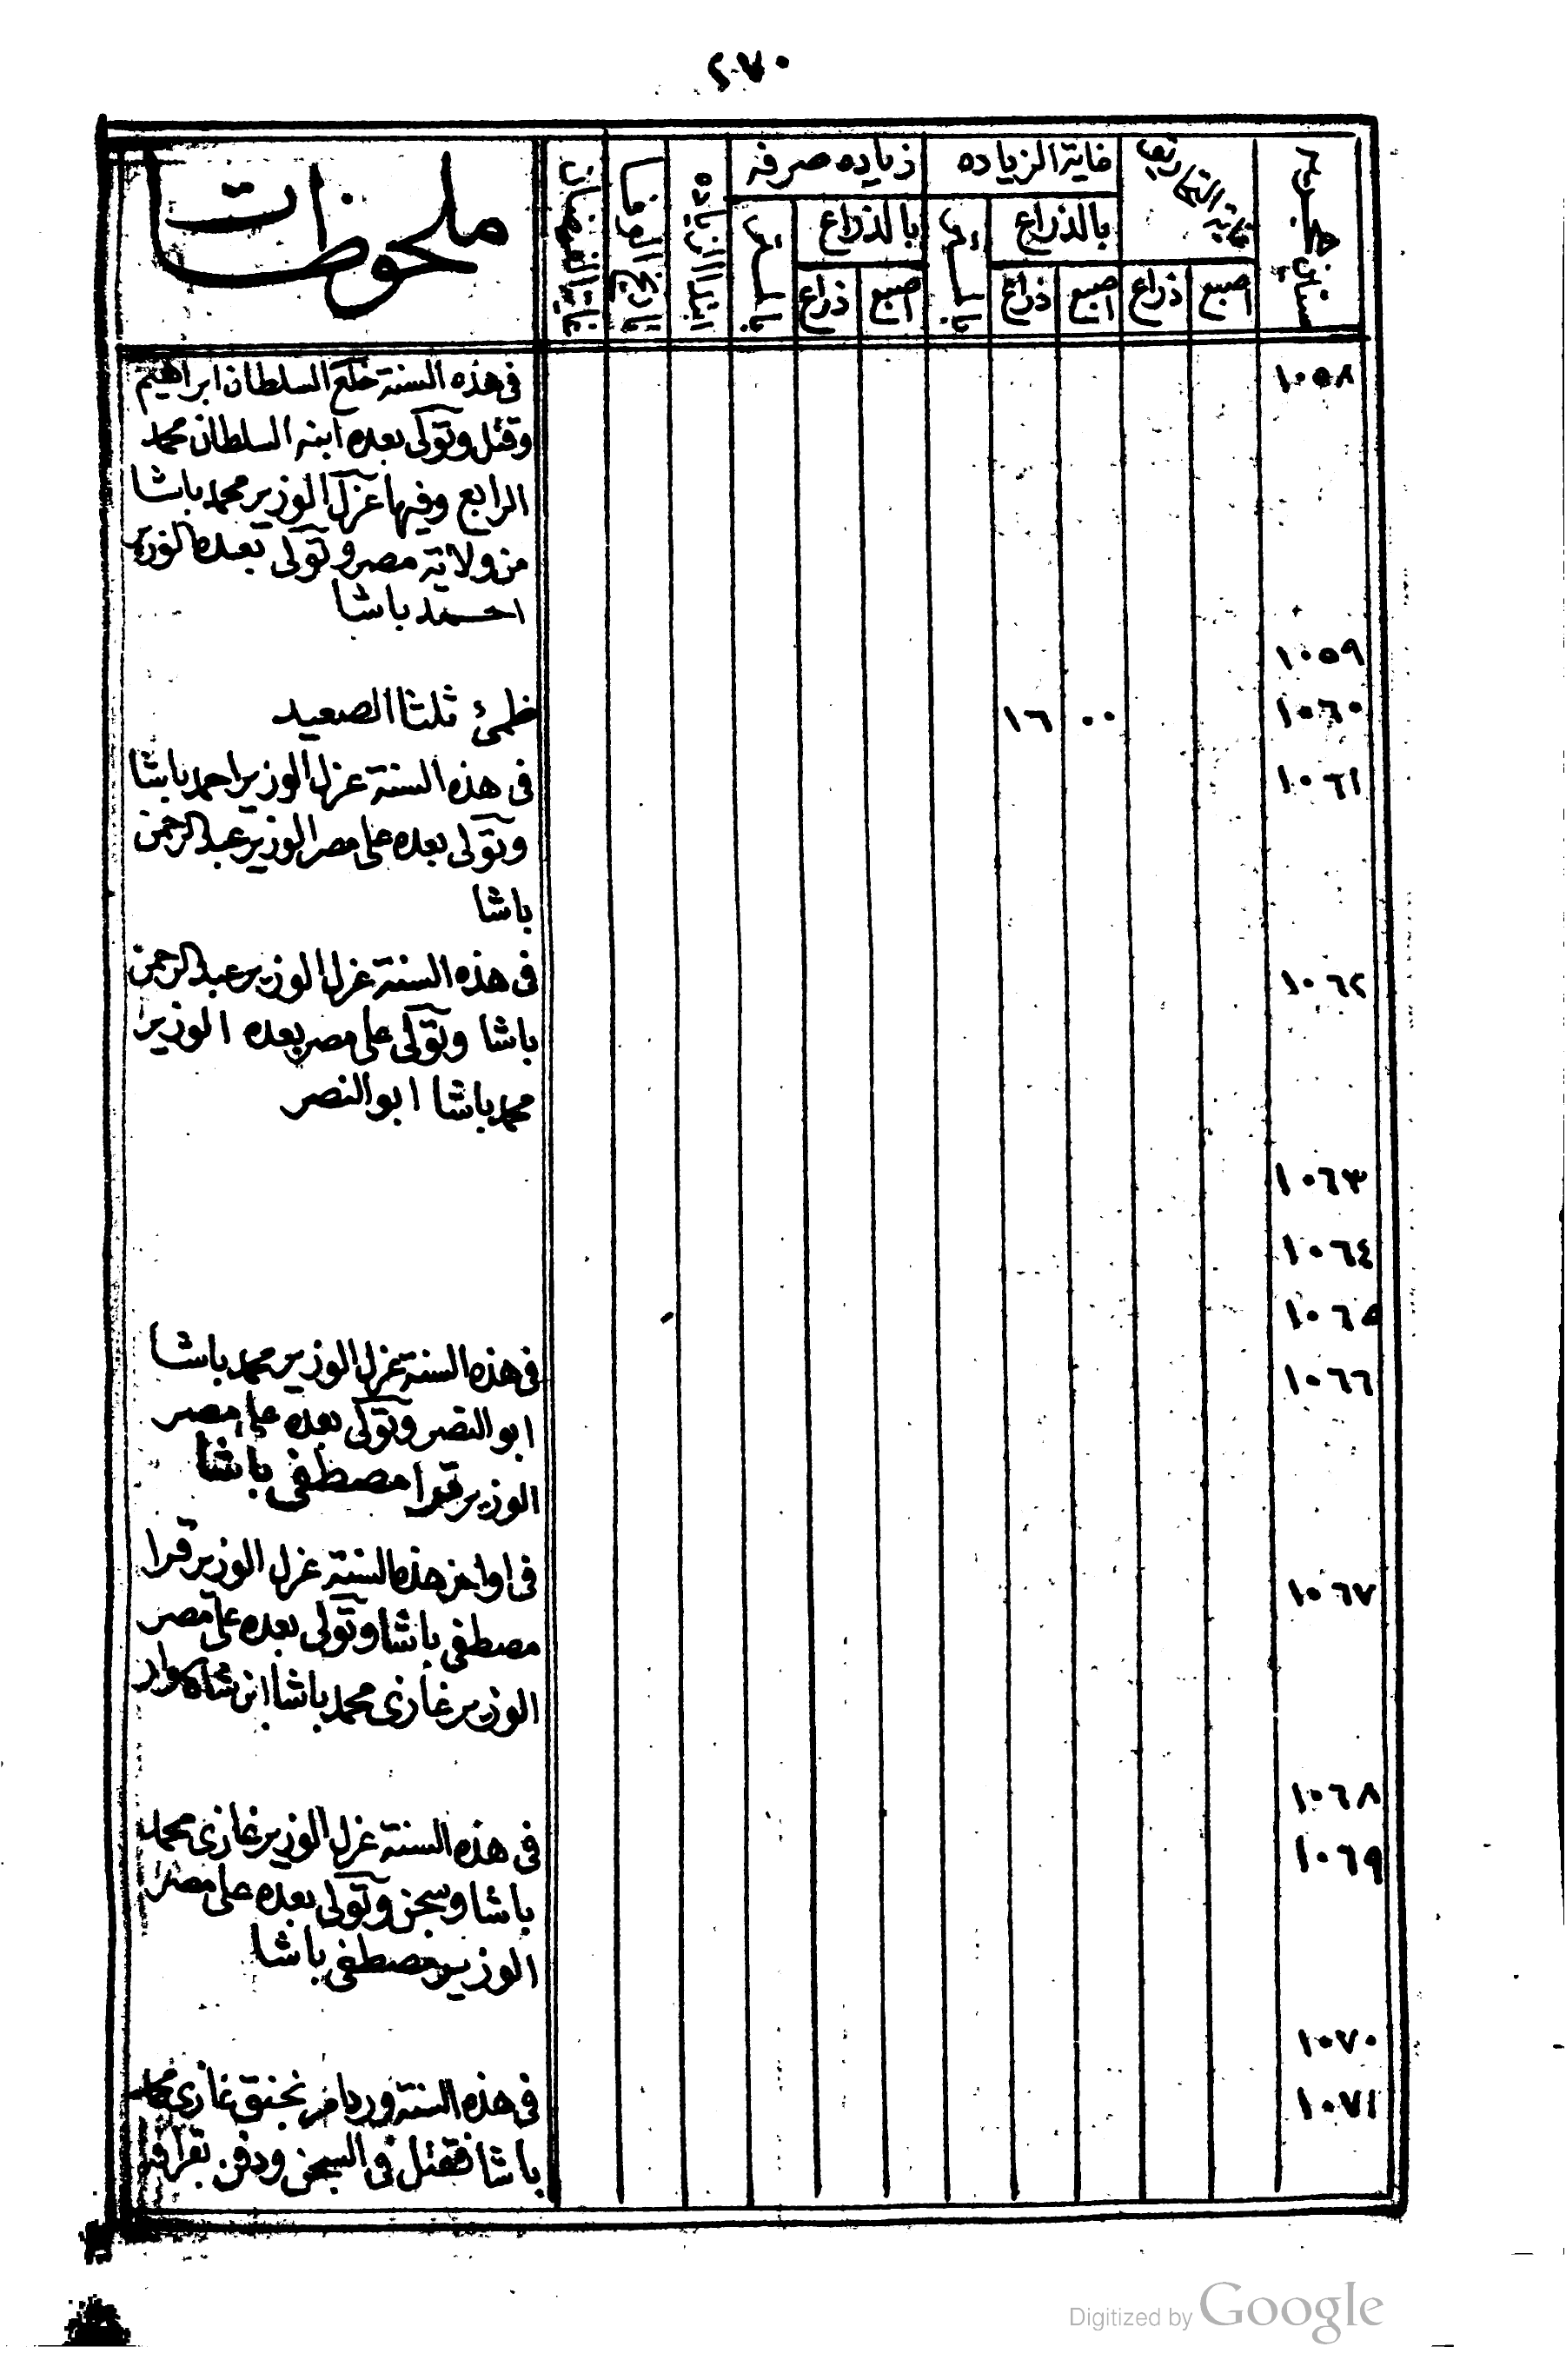 ٢٧٠
سنين هجريه
غاية التحاريق
غاية الزياده
زياده صرفه
ابتدا الزياده
تاريخ الوفا
غاية الفيضان
ملحوظات
بالذراع
بالمتر
بالذراع
بالمتر
اصبع ذراع اصبع ذراع اصبع ذراع
١٠٥٨ فى هذه السنة خلع السلطان ابراهيم
وقتل وتولى بعده ابنه السلطان محمد
الرابع وفيها عزل الوزير محمد باشا
من ولاية مصر وتولى بعده الوزير
احمد باشا
١٠٥٩
١٠٦٠ ٠٠ ١٦ ظمئ ثلثا الصعيد
١٠٦١ فى هذه السنة عزل الوزير احمد باشا
وتولى بعده على مصر الوزير عبد الرحمن
باشا
١٠٦٢ فى هذه السنة عزل الوزير عبد الرحمن
باشا وتولى على مصر بعده الوزير
محمد باشا ابو النصر
١٠٦٣
١٠٦٤
١٠٦٥
١٠٦٦ فى هذه السنة عزل الوزير محمد باشا
ابو النصر وتولى بعده على مصر
الوزير قرا مصطفى باشا
١٠٦٧ فى اواخر هذه السنة عزل الوزير قرا
مصطفى باشا وتولى بعده على مصر
الوزير غازى محمد باشا ابن شاه سوار
١٠٦٨
١٠٦٩ فى هذه السنة عزل الوزير غازى محمد
باشا وسجن وتولى بعده على مصر
الوزير مصطفى باشا
١٠٧٠
١٠٧١ فى هذه السنة ورد امر بخنق غازى محمد
باشا فقتل فى السجن ودفن بقرافة
Digitized by Google